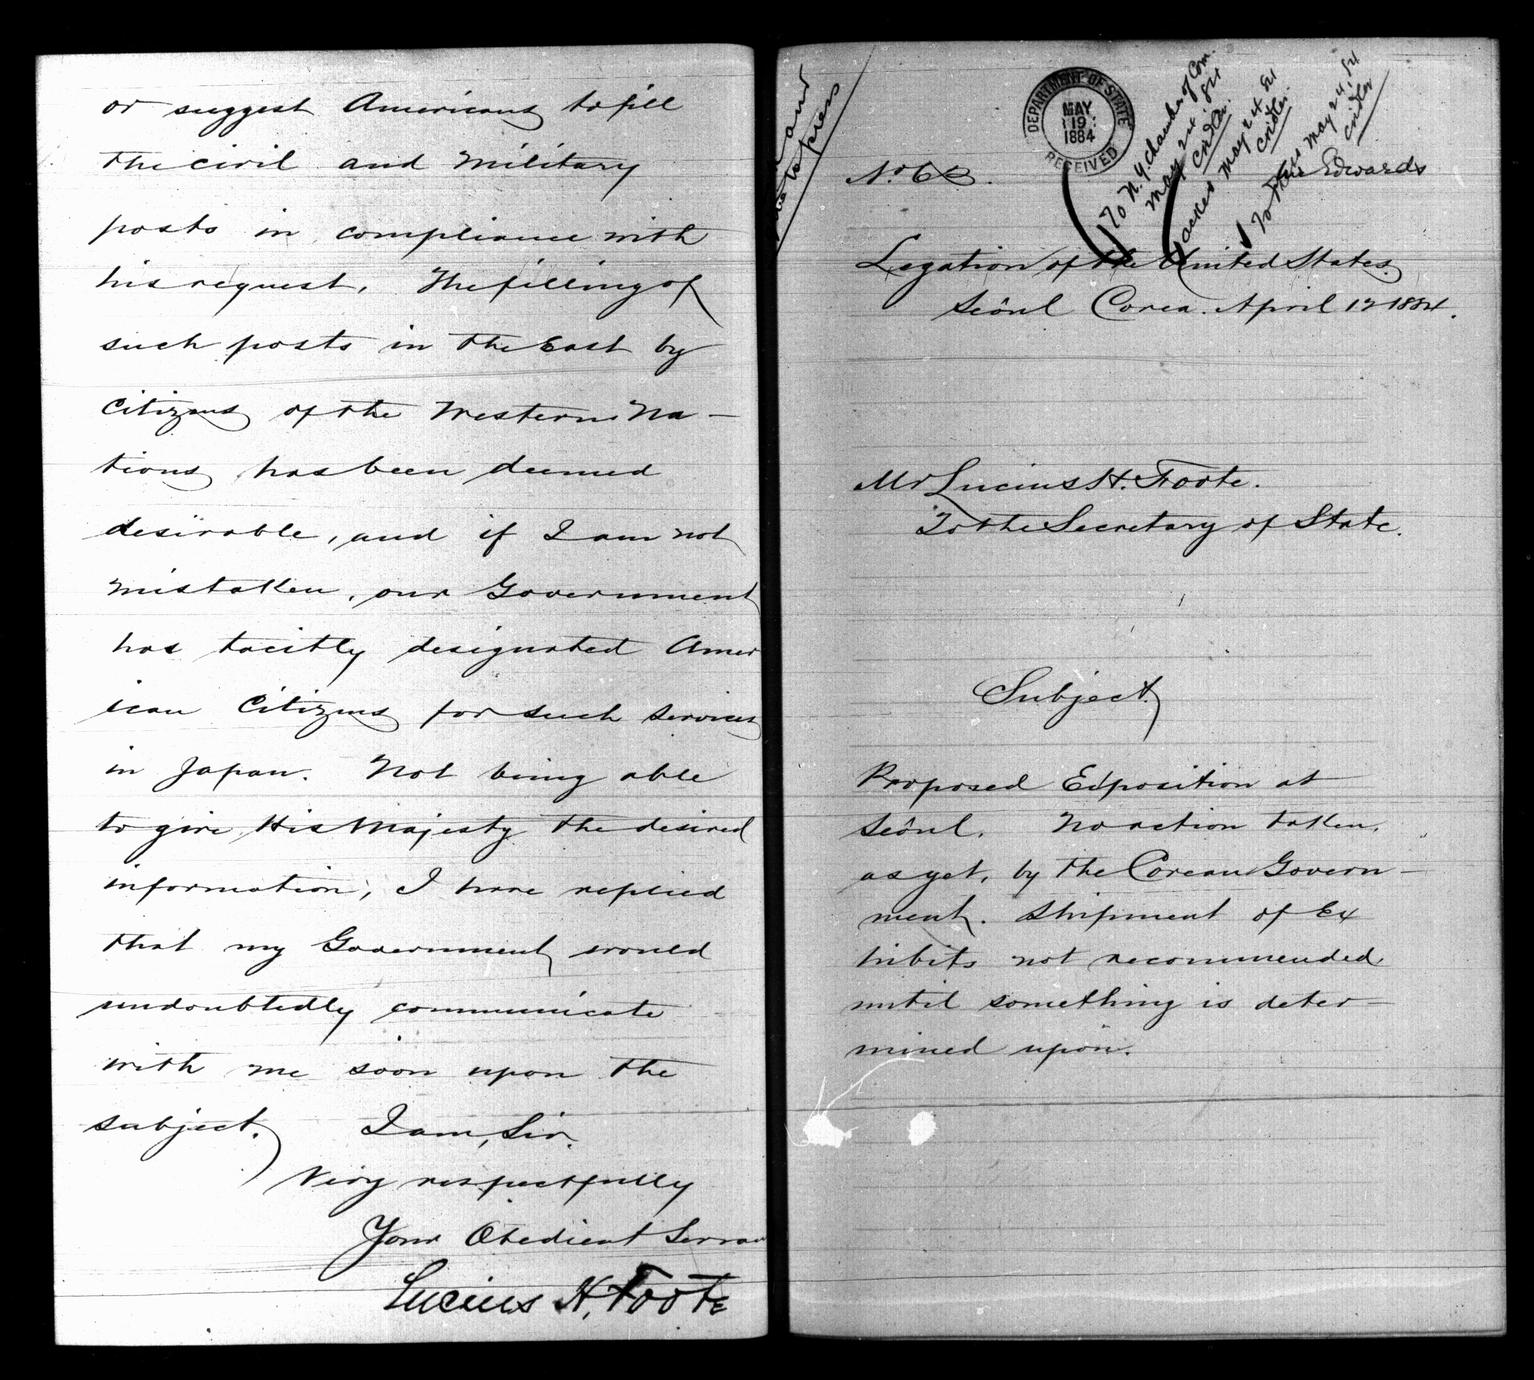 or suggest Americans to fill
the civil and military
posts in compliance with
his request. The filling of
such posts in the East by
Citizens of the Western Na-
tions has been deemed
desirable, and if I am not
mistaken, our Government
has tacitly designated Amer
ican Citizens for such services
in Japan. Not being able
to give His Majesty the desired
information, I have replied
that my Government would
undoubtedly communicate
with me soon upon the
subject.
I am, Sir,
Very respectfully
Your Obedient Servan
Lucius H. Foote
DEPARTMENT OF STATE
MAY
19
1884
RECEIVED
To N.Y. Chamber of Com.
May 24
acked May 24 84
Cridler
May 24, 84
Cridler
Edwards
No
Legation of the United States
Seôul Corea. April 1884.
Mr Lucius H. Foote.
To the Secretary of State.
Subject
Proposed Exposition at
Seôul. No action taken,
as yet, by the Corean Govern-
ment. Shipment of Ex
hibits not recommended
until something is deter-
mined upon.